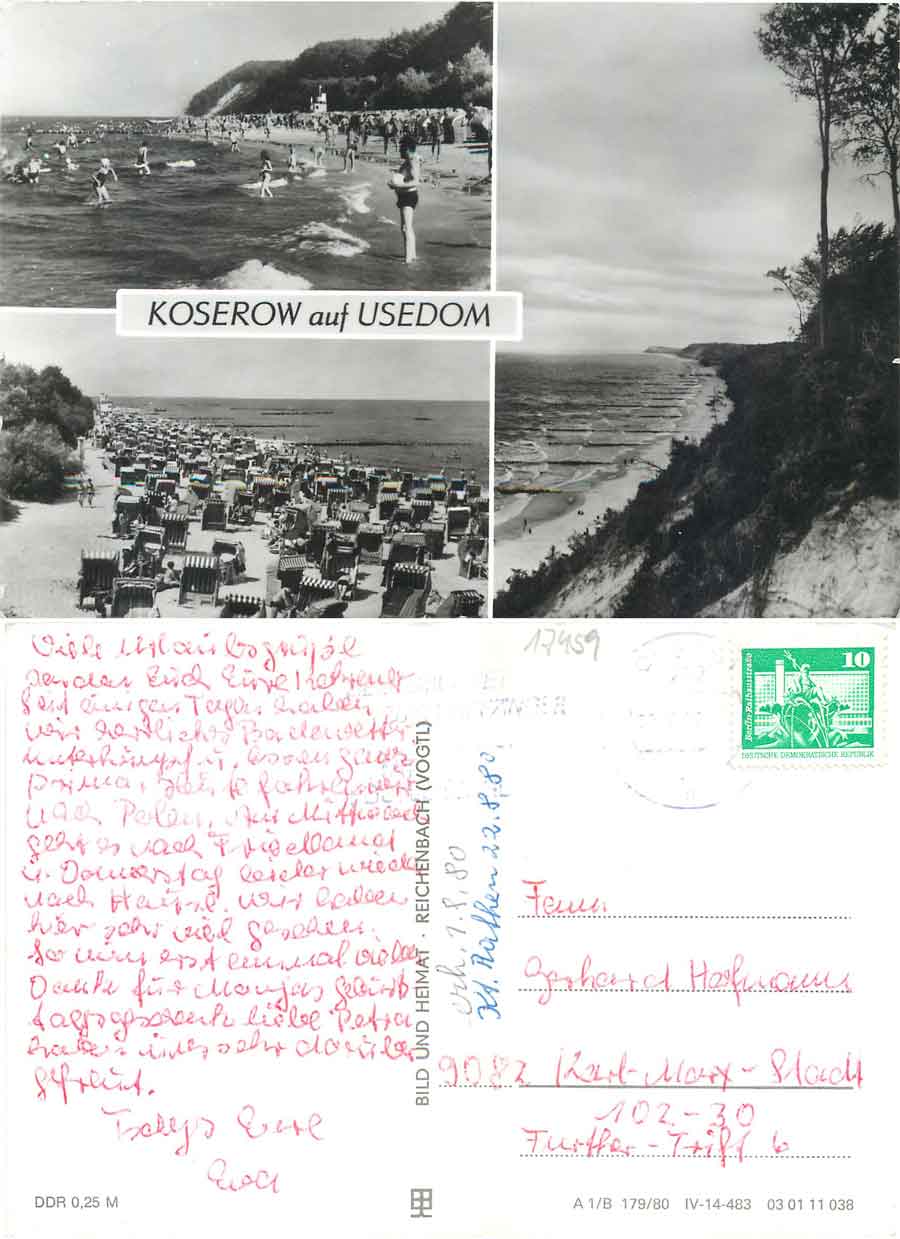 KOSEROW auf USEDOM
Viele Urlaubsgrüße
senden Euch Eure
Seit einigen Tagen haben
wir herrliches Badewetter
Unterkunft u. Essen ganz
prima, heute fahren wir
nach Polen. Am Mittwoch
geht es nach
u. Donnerstag leider wieder
nach Hause. Wir haben
hier sehr viel gesehen.
So nun erst einmal vielen
Dank für Manjas Geburts
tagsgeschenk liebe Petra
haben uns sehr darüber
gefreut.
Tschüß Eure
17459
10
Berlin-Rathausstraße
DEUTSCHE DEMOKRATISCHE REPUBLIK
BILD UND HEIMAT · REICHENBACH (VOGTL)
erh. 7.8.80
Kt. Rathen 22.8.80.
Fam.
Gerhard Hofmann
9082 Karl-Marx-Stadt
102-30
Further-Trift 6
DDR 0,25 M
A 1/B 179/80 IV-14-483 03 01 11 038